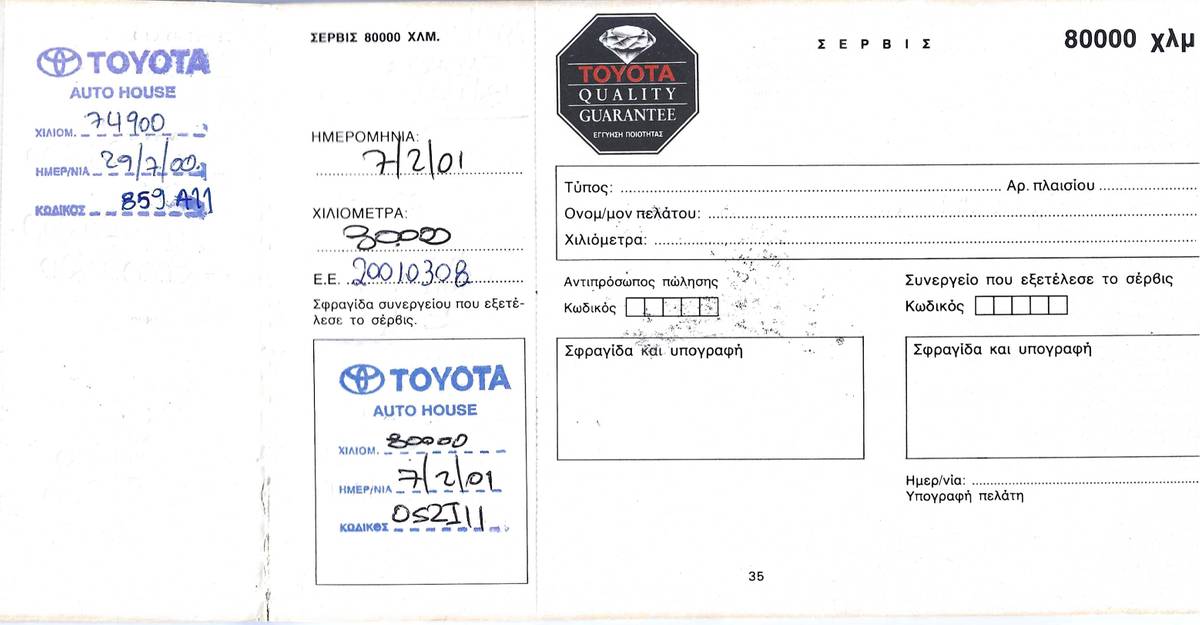 TOYOTA
AUTO HOUSE
ΧΙΛΙΟΜ. 74900
ΗΜΕΡ/ΝΙΑ 29/7/00
ΚΩΔΙΚΟΣ 859 A11
ΣΕΡΒΙΣ 80000 ΧΛΜ.
ΗΜΕΡΟΜΗΝΙΑ:
7/2/01
ΧΙΛΙΟΜΕΤΡΑ:
80000
Ε.Ε. 20010308
Σφραγίδα συνεργείου που εξετέ-
λεσε το σέρβις.
TOYOTA
AUTO HOUSE
ΧΙΛΙΟΜ. 80000
ΗΜΕΡ/ΝΙΑ 7/2/01
ΚΩΔΙΚΟΣ 052I11
TOYOTA
QUALITY
GUARANTEE
ΕΓΓΥΗΣΗ ΠΟΙΟΤΗΤΑΣ
ΣΕΡΒΙΣ 80000 χλμ
Τύπος: Αρ. πλαισίου
Ονομ/μον πελάτου:
Χιλιόμετρα:
Αντιπρόσωπος πώλησης
Κωδικός
Σφραγίδα και υπογραφή
Συνεργείο που εξετέλεσε το σέρβις
Κωδικός
Σφραγίδα και υπογραφή
Ημερ/νία:
Υπογραφή πελάτη
35